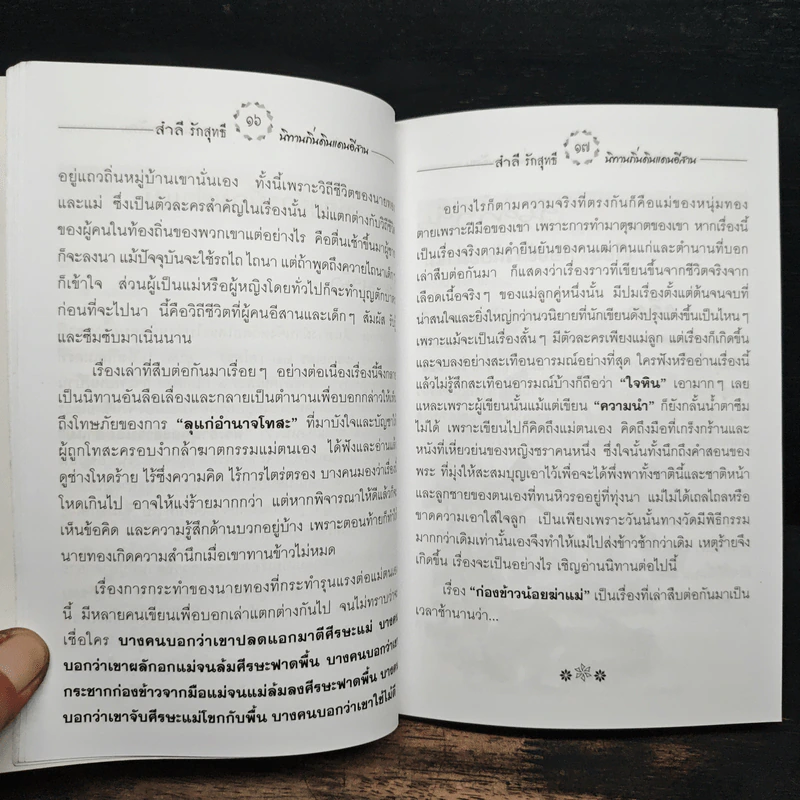 สำลี รักสุทธี ๑๖ นิทานถิ่นดินแดนอีสาน
อยู่แถวถิ่นหมู่บ้านเขานั่นเอง ทั้งนี้เพราะวิถีชีวิตของนายทอง
และแม่ ซึ่งเป็นตัวละครสำคัญในเรื่องนั้น ไม่แตกต่างกับวิถีชีวิต
ของผู้คนในท้องถิ่นของพวกเขาแต่อย่างไร คือตื่นเช้าขึ้นมาผู้ชาย
ก็จะลงนา แม้ปัจจุบันจะใช้รถไถ ไถนา แต่ถ้าพูดถึงควายไถนาเด็กๆ
ก็เข้าใจ ส่วนผู้เป็นแม่หรือผู้หญิงโดยทั่วไปก็จะทำบุญตักบาตร
ก่อนที่จะไปนา นี้คือวิถีชีวิตที่ผู้คนอีสานและเด็กๆ สัมผัส
และซึมซับมาเนิ่นนาน
เรื่องเล่าที่สืบต่อกันมาเรื่อยๆ อย่างต่อเนื่องเรื่องนี้จึงกลาย
เป็นนิทานอันลือเลื่องและกลายเป็นตำนานเพื่อบอกกล่าวให้
ถึงโทษภัยของการ “ลุแก่อำนาจโทสะ” ที่มาบังใจและบัญชาให้
ผู้ถูกโทสะครอบงำกล้าฆาตกรรมแม่ตนเอง ได้ฟังและอ่านแล้ว
ดูช่างโหดร้าย ไร้ซึ่งความคิด ไร้การไตร่ตรอง บางคนมองว่าเรื่อง
โหดเกินไป อาจให้แง่ร้ายมากกว่า แต่หากพิจารณาให้ดีแล้วก็จะ
เห็นข้อคิด และความรู้สึกด้านบวกอยู่บ้าง เพราะตอนท้ายก็ทำให้
นายทองเกิดความสำนึกเมื่อเขาทานข้าวไม่หมด
เรื่องการกระทำของนายทองที่กระทำรุนแรงต่อแม่ตนเอง
นี้ มีหลายคนเขียนเพื่อบอกเล่าแตกต่างกันไป จนไม่ทราบว่าจะ
เชื่อใคร บางคนบอกว่าเขาปลดแอกมาตีศีรษะแม่ บางคน
บอกว่าเขาผลักอกแม่จนล้มศีรษะฟาดพื้น บางคนบอกว่าเขา
กระชากก่องข้าวจากมือแม่จนแม่ล้มลงศีรษะฟาดพื้น บางคน
บอกว่าเขาจับศีรษะแม่โขกกับพื้น บางคนบอกว่าเขาใช้ไม้ตี
สำลี รักสุทธี ๑๗ นิทานถิ่นดินแดนอีสาน
อย่างไรก็ตามความจริงที่ตรงกันก็คือแม่ของหนุ่มทอง
ตายเพราะฝีมือของเขา เพราะการทำมาตุฆาตของเขา หากเรื่องนี้
เป็นเรื่องจริงตามคำยืนยันของคนเฒ่าคนแก่และตำนานที่บอก
เล่าสืบต่อกันมา ก็แสดงว่าเรื่องราวที่เขียนขึ้นจากชีวิตจริงจาก
เลือดเนื้อจริงๆ ของแม่ลูกคู่หนึ่งนั้น มีปมเรื่องตั้งแต่ต้นจนจบที่
น่าสนใจและยิ่งใหญ่กว่านวนิยายที่นักเขียนดังปรุงแต่งขึ้นเป็นไหนๆ
เพราะแม้จะเป็นเรื่องสั้นๆ มีตัวละครเพียงแม่ลูก แต่เรื่องก็เกิดขึ้น
และจบลงอย่างสะเทือนอารมณ์อย่างที่สุด ใครฟังหรืออ่านเรื่องนี้
แล้วไม่รู้สึกสะเทือนอารมณ์บ้างก็ถือว่า “ใจหิน” เอามากๆ เลย
แหละเพราะผู้เขียนนั้นแม้แต่เขียน “ความนำ” ก็ยังกลั้นน้ำตาซึม
ไม่ได้ เพราะเขียนไปก็คิดถึงแม่ตนเอง คิดถึงมือที่เกร็งกร้านและ
หนังที่เหี่ยวย่นของหญิงชราคนหนึ่ง ซึ่งใจนั้นทั้งนึกถึงคำสอนของ
พระ ที่มุ่งให้สะสมบุญเอาไว้เพื่อจะได้พึ่งพาทั้งชาตินี้และชาติหน้า
และลูกชายของตนเองที่ทนหิวรออยู่ที่ทุ่งนา แม่ไม่ได้เถลไถลหรือ
ขาดความเอาใจใส่ใจลูก เป็นเพียงเพราะวันนั้นทางวัดมีพิธีกรรม
มากกว่าเดิมเท่านั้นเองจึงทำให้แม่ไปส่งข้าวช้ากว่าเดิม เหตุร้ายจึง
เกิดขึ้น เรื่องจะเป็นอย่างไร เชิญอ่านนิทานต่อไปนี้
เรื่อง “ก่องข้าวน้อยฆ่าแม่” เป็นเรื่องที่เล่าสืบต่อกันมาเป็น
เวลาช้านานว่า...